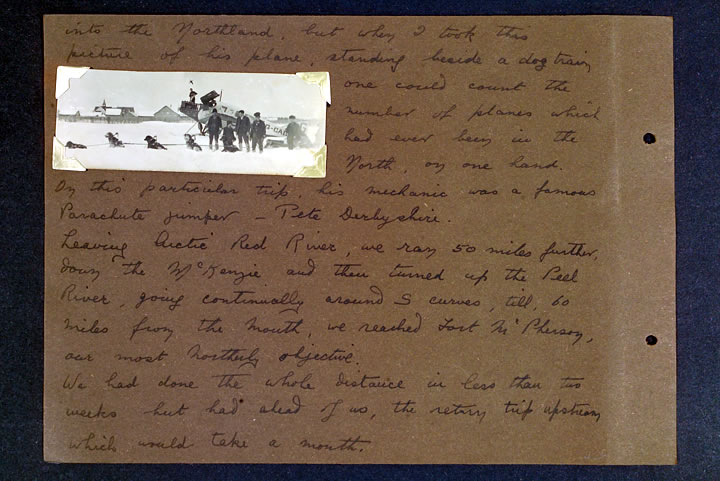 into the Northland, but when I took this
picture of his plane, standing beside a dog train
one could count the
number of planes which
had ever been in the
North, on one hand.
On this particular trip, his mechanic was a famous
Parachute jumper - Pete Derbyshire.
Leaving Arctic Red River, we ran 50 miles further,
down the McKenzie and then turned up the Peel
River, going continually around S curves, till, 60
miles from the mouth, we reached Fort McPherson,
our most Northerly objective.
We had done the whole distance in less than two
weeks but had ahead of us, the return trip upstream
which would take a month.